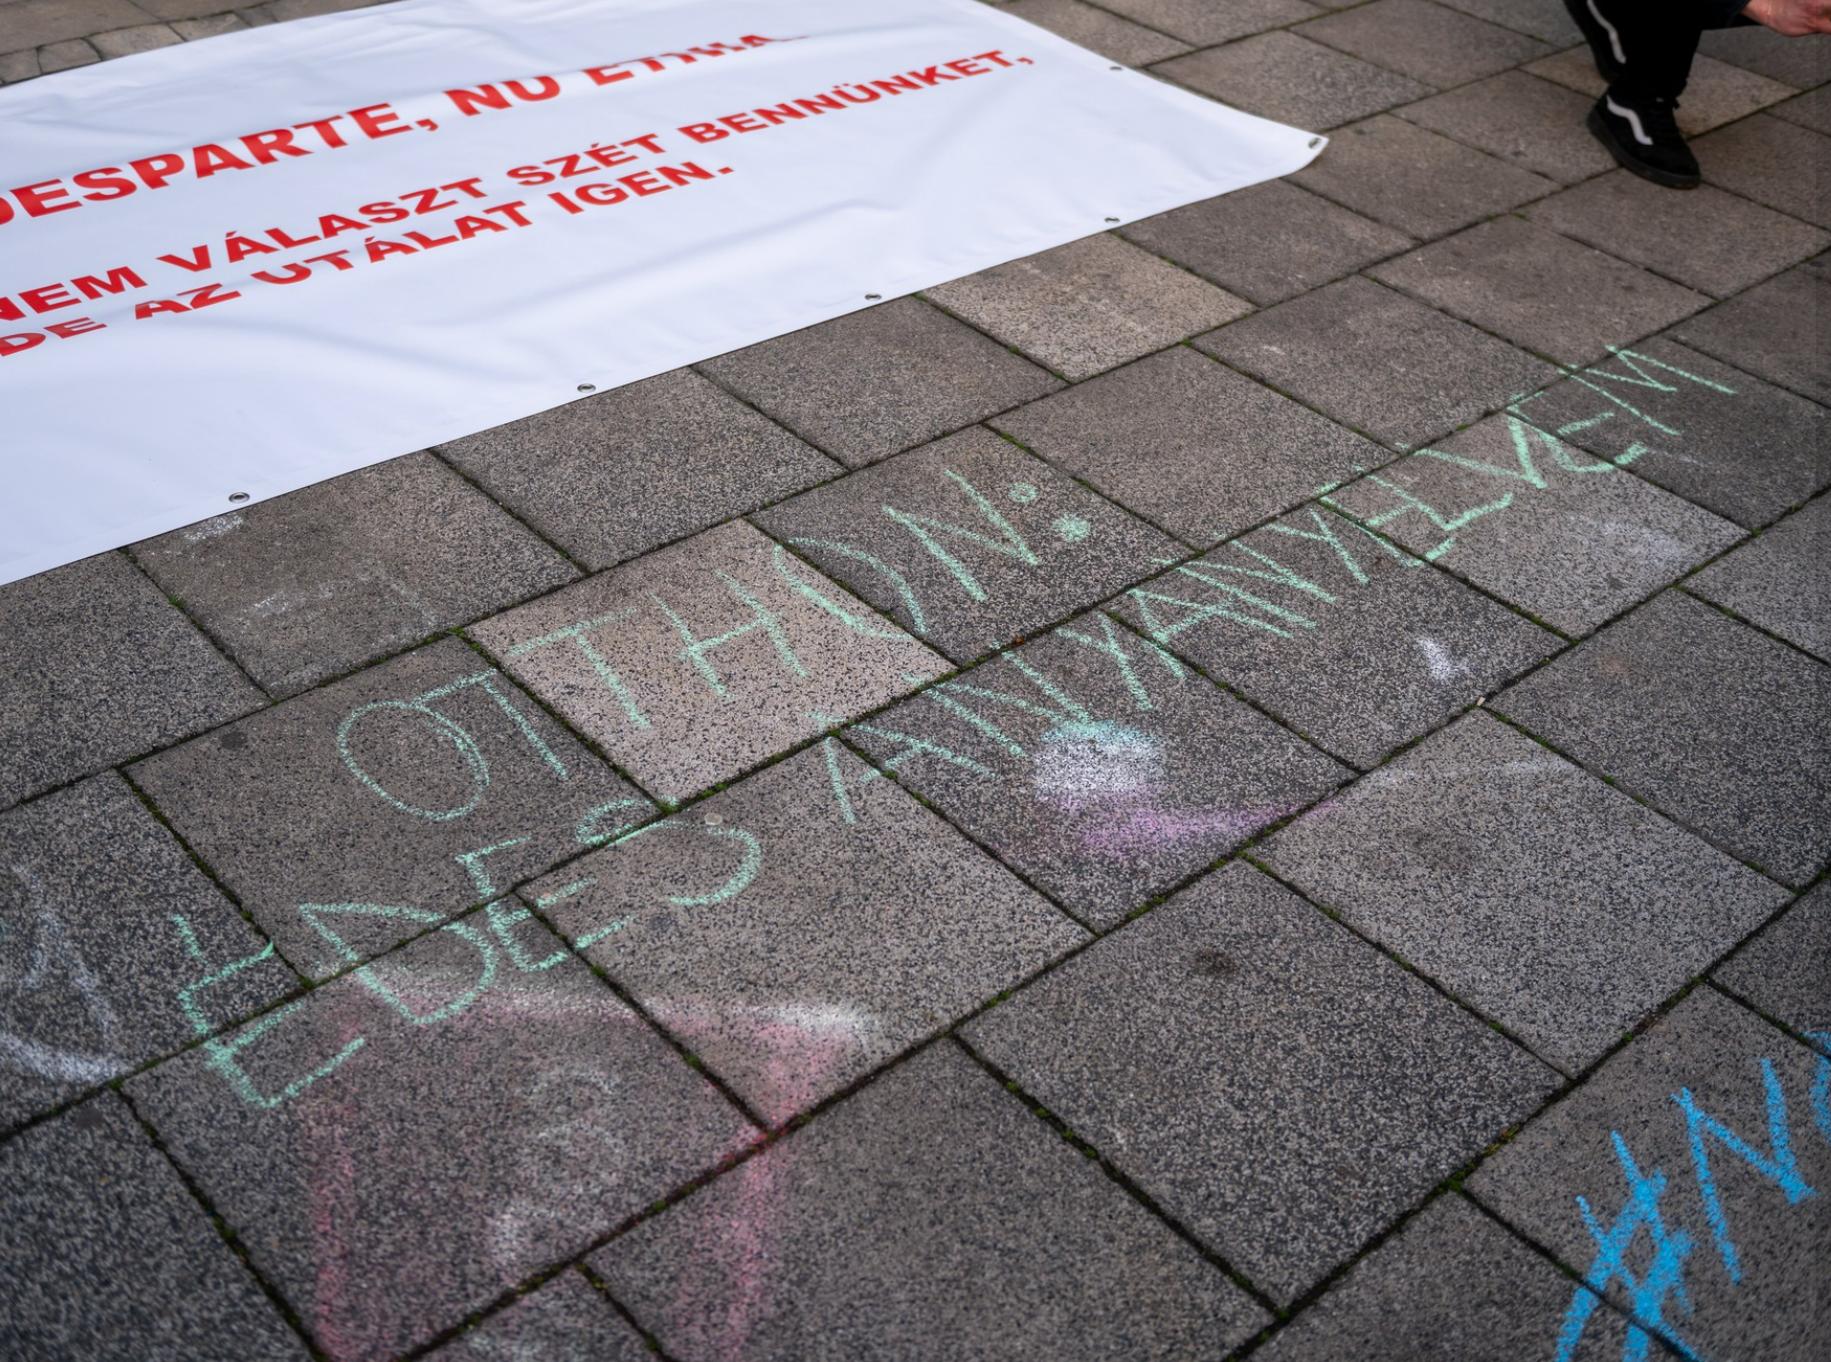 DESPARTE, NU ETNIA.
NEM VÁLASZT SZÉT BENNÜNKET,
DE AZ UTÁLAT IGEN.
OTTHON:
ÉDES ANYANYELVEM